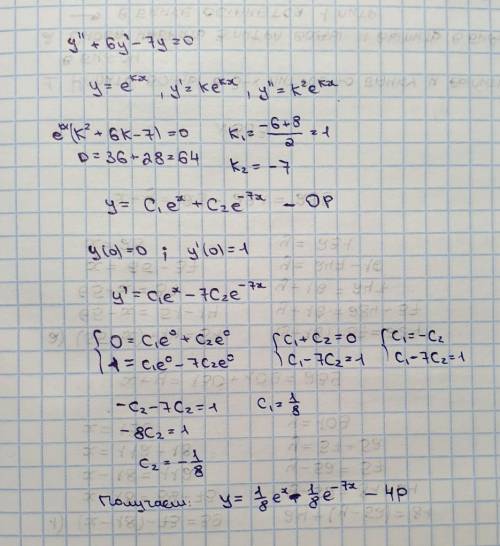 y'' + 6y' - 7y = 0
y = e^{kx}, y' = ke^{kx}, y'' = k²e^{kx}
e^{kx}(k² + 6k - 7) = 0    k₁ = \frac{-6+8}{2} = 1
D = 36 + 28 = 64    k₂ = -7
y = C₁e^x + C₂e^{-7x} - ОР
y(0) = 0 ; y'(0) = 1
y' = C₁e^x - 7C₂e^{-7x}
{ 0 = C₁e⁰ + C₂e⁰    { C₁ + C₂ = 0    { C₁ = -C₂
1 = C₁e⁰ - 7C₂e⁰    C₁ - 7C₂ = 1    C₁ - 7C₂ = 1
-C₂ - 7C₂ = 1    C₁ = \frac{1}{8}
-8C₂ = 1
C₂ = -\frac{1}{8}
Получаем: y = \frac{1}{8}e^x - \frac{1}{8}e^{-7x} - ЧР